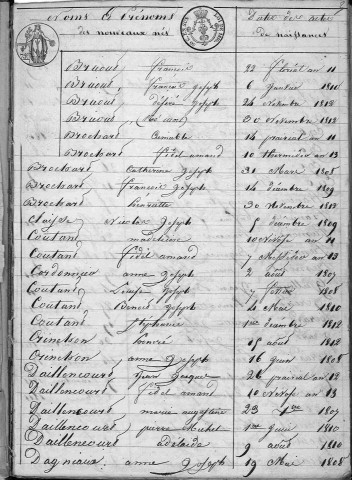 Noms & Prénoms des nouveaux nés Date des actes de naissances
Braout françois 22 floréal an 11
Braout, françois joseph 6 Janvier 1810
Braout désiré joseph 24 Novembre 1812
Braout 30 Novembre 1812
Brochard, aimable 14 prairial an 11
Brochard fidel amand 10 thermidor an 13
Brochard Catherine joseph 31 Mars 1808
Brochart françois joseph 14 décembre 1809
Brochart henriette 30 Novembre 1812
Nicolas joseph 5 décembre 1809
Coutant madeleine an 11
Coutant fidel amand 7 Messidor an 13
Cordonnier anne joseph 2 août 1807
Coutant Louise joseph 7 1808
Coutant Benoit joseph 4 Mai 1810
Coutant Stéphanie 1er décembre 1812
Crinchon honoré 15 août 1812
Crinchon, anne joseph 16 Juin 1808
Daillencourt jean Jacques 26 prairial an 12
Daillencourt fidel amand 10 an 13
Daillencourt, marie augustine 23 1807
Daillencourt, pierre Michel 1er Juin 1810
Daillencourt adelaïde 9 août 1810
Dagniaux, anne joseph 19 Mai 1808